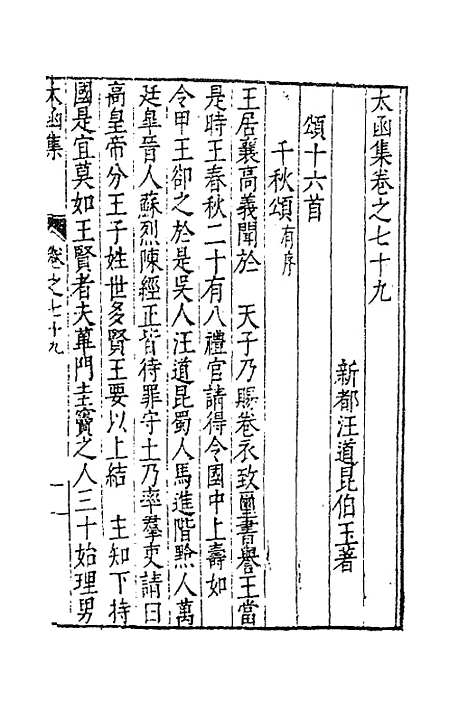 太函集卷之七十九
新都汪道昆伯玉著
頌十六首
千秋頌有序
王居襄高義聞於　天子乃賜卷衣致璽書譽王當
是時王春秋二十有八禮官請得令國中上壽如
令甲王卻之於是吳人汪道昆蜀人馬進階黔人萬
廷皐晉人蘇烈陳經正皆待罪守土乃率羣吏請曰
高皇帝分王子姓世多賢王要以上結　主知下持
國是宜莫如王賢者夫蓽門圭竇之人三十始理男
太函集
卷之七十九
一